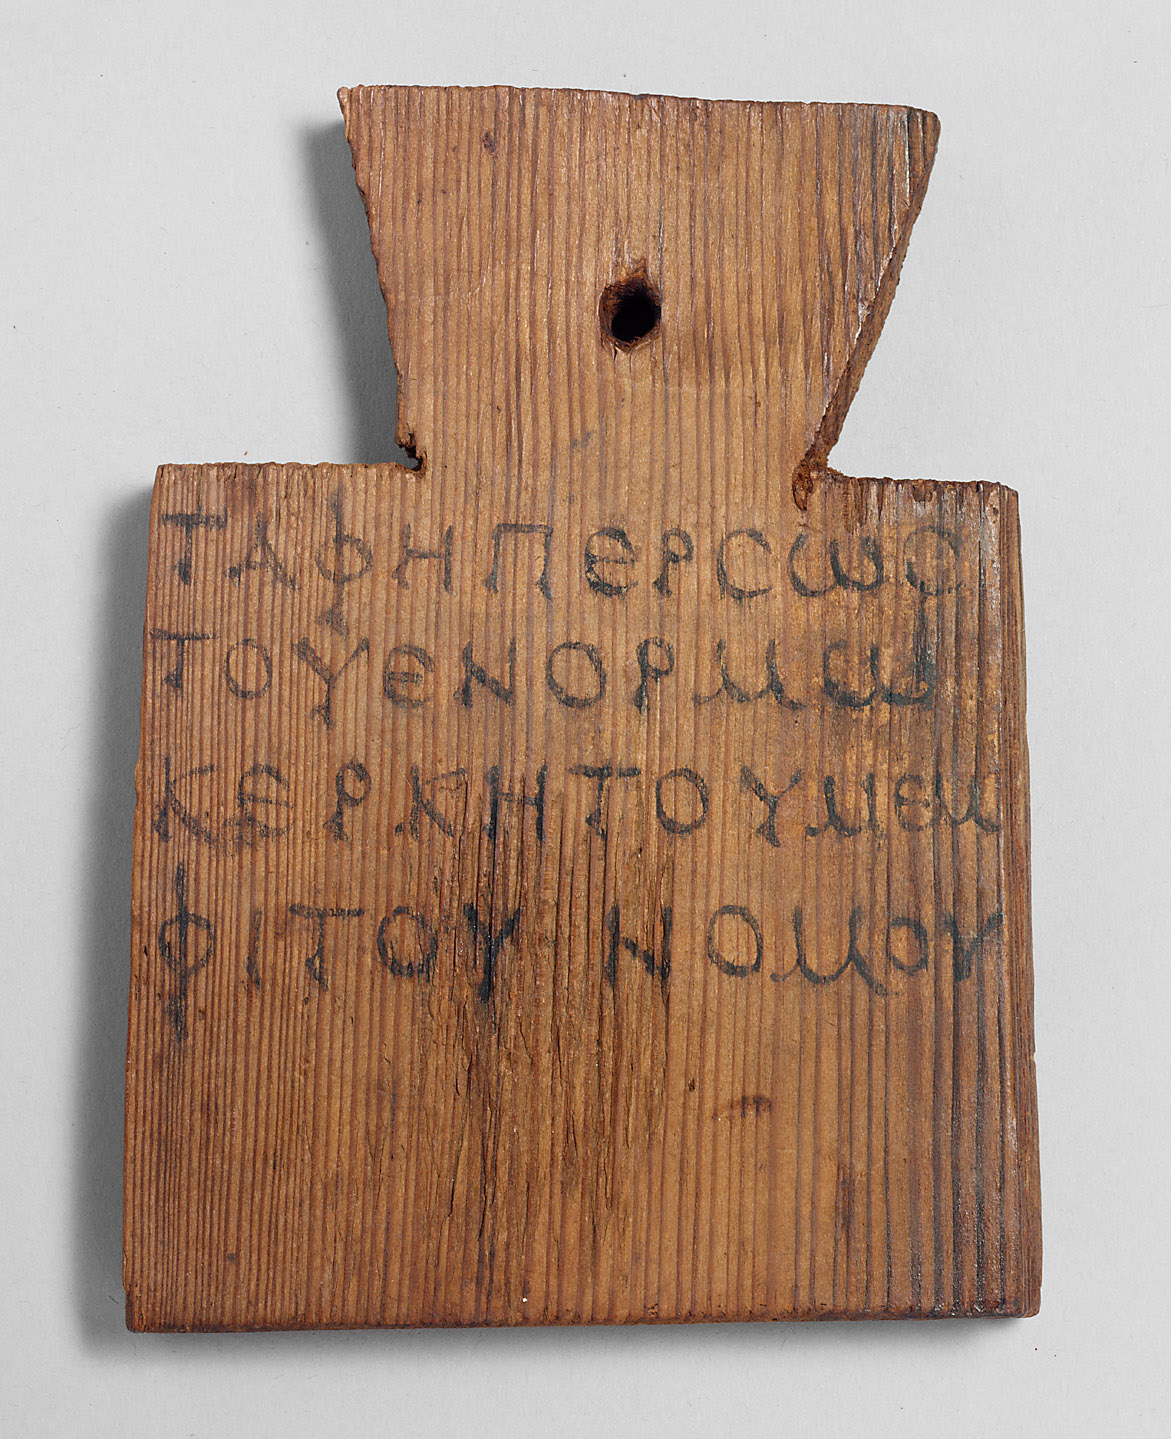 ΤΑΦΗΠΕΡCѠC
ΤΟΥΕΝΟΡΜѠ
ΚΕΡΚΗΤΟΥΜΕΜ
ΦΙΤΟΥΝΟΜΟΥ